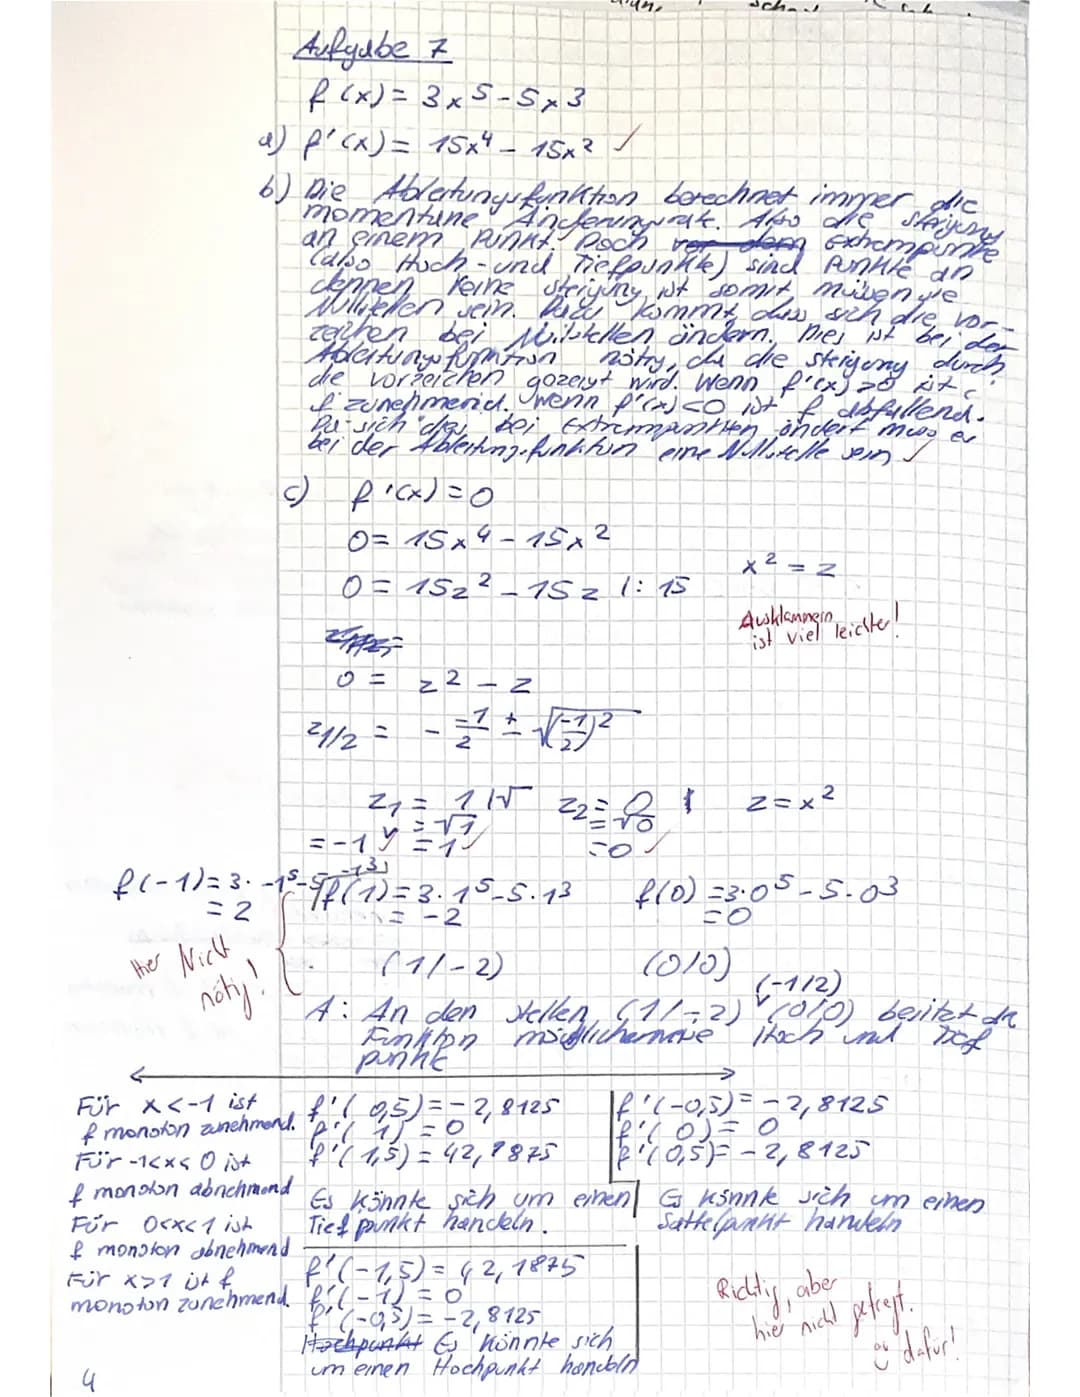 Aufgabe 7
f(x) = 3x5 - 5x3
a) f'(x) = 15x⁴ - 15x² ✓
b) Die Ableitungsfunktion berechnet immer die
momentane Änderungsrate. Also die Steigung
an einem Punkt. Doch Extrempunkte
(also Hoch- und Tiefpunkte) sind Punkte an
denen keine steigung ist somit müssen sie
Nullstellen sein. Dazu kommt, dass sich die vor-
zeichen bei Nullstellen ändern. Dies ist bei der
Ableitungsfunktion nötig, da die steigung durch
die vorzeichen gezeigt wird. Wenn f'(x)>0 ist,
f zunehmend. Wenn f'(x)<0 ist f abfallend.
Da sich das bei Extrempunkten ändert muss es
bei der Ableitungsfunktion eine Nullstelle sein ✓
c) f'(x) = 0
0 = 15x⁴ - 15x²
x² = z
0 = 15z² - 15z |: 15
Ausklammern
ist viel leichter!
0 = z² - z
z1/2 = - -1/2 ± √(-1/2)²
z1 = 1 |√ z2 = 0 z = x²
= √1 = √0
= -1 ✓ = 1 ✓ = 0 ✓
f(-1) = 3 · -1⁵ - 5 · -1³ f(1) = 3 · 1⁵ - 5 · 1³ f(0) = 3 · 0⁵ - 5 · 0³
= 2 = -2 = 0
Hier Nicht
nötig!
(1/-2) (0/0)
(-1/2)
A: An den stellen (1/-2) (0/0) besitzt die
Funktion möglicherweise Hoch und Tief
punkte
Für x<-1 ist
f monoton zunehmend.
Für -1<x<0 ist
f monoton abnehmend
Für 0<x<1 ist
f monoton abnehmend
Für x>1 ist f
monoton zunehmend.
f'(0,5) = -2,8125
f'(1) = 0
f'(1,5) = 42,1875
Es könnte sich um einen
Tiefpunkt handeln.
f'(-0,5) = -2,8125
f'(0) = 0
f'(0,5) = -2,8125
Es könnte sich um einen
Sattelpunkt handeln
f'(-1,5) = 42,1875
f'(-1) = 0
f'(-0,5) = -2,8125
Hochpunkt Es könnte sich
um einen Hochpunkt handeln
Richtig, aber
hier nicht gefragt.
dafür!
4